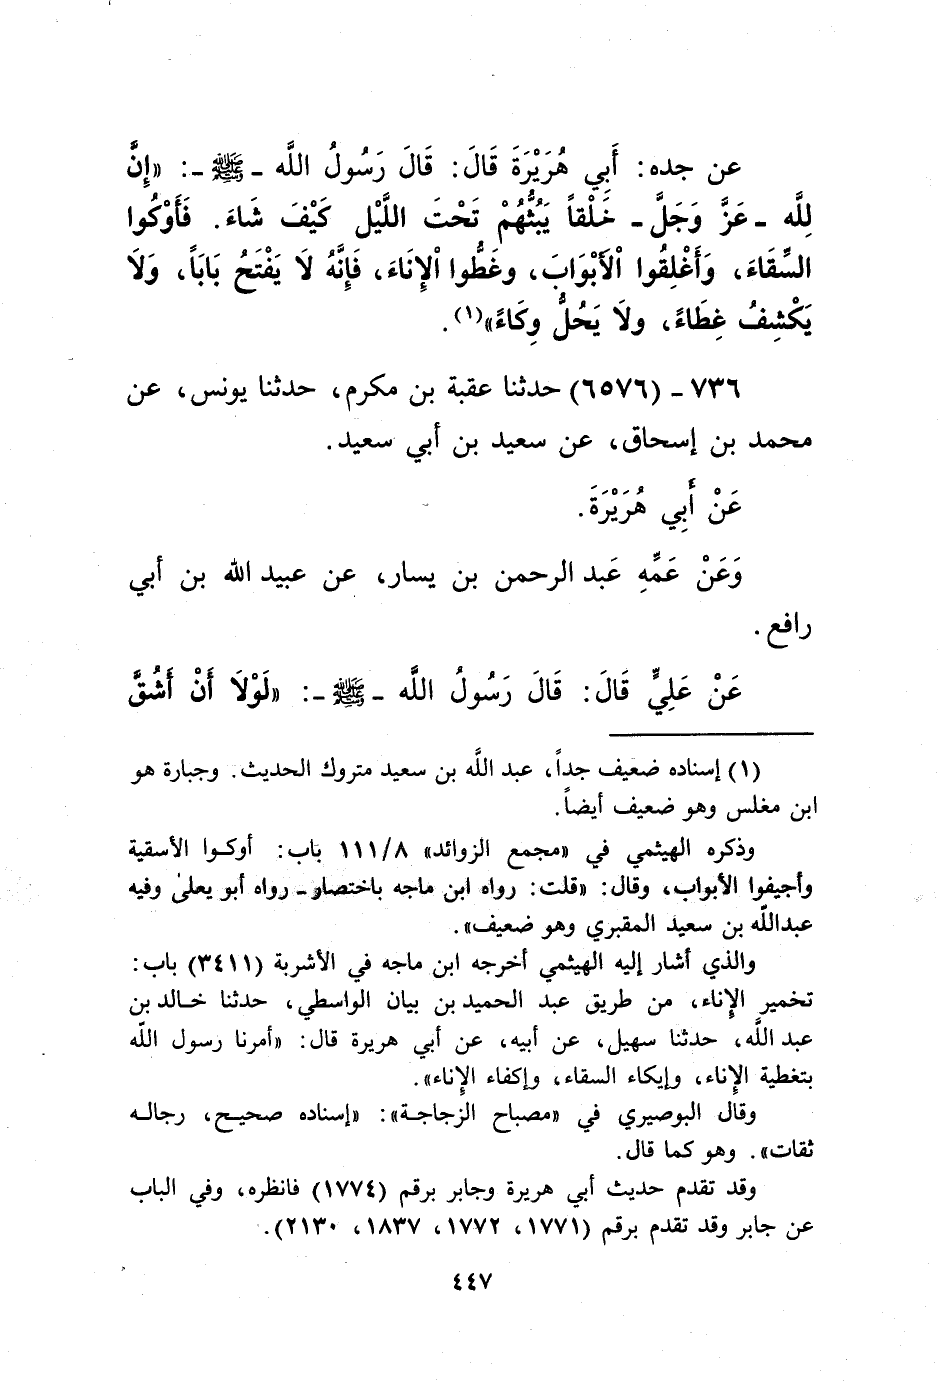 عن جده: أَبِي هُرَيْرَةَ قَالَ: قَالَ رَسُولُ اللَّه ـ ﷺ ـ: «إِنَّ
لِلَّه ـ عَزَّ وَجَلَّ ـ خَلْقاً يَبُثُّهُمْ تَحْتَ اللَّيْلِ كَيْفَ شَاءَ. فَأَوْكُوا
السِّقَاءَ، وَأَغْلِقُوا الْأَبْوَابَ، وغَطُّوا الْإِنَاءَ، فَإِنَّهُ لَا يَفْتَحُ بَابَاً، وَلَا
يَكْشِفُ غِطَاءً، ولَا يَحُلُّ وِكَاءً»(١).
٧٣٦ ـ (٦٥٧٦) حدثنا عقبة بن مكرم، حدثنا يونس، عن
محمد بن إسحاق، عن سعيد بن أبي سعيد.
عَنْ أَبِي هُرَيْرَةَ.
وَعَنْ عَمِّهِ عَبد الرحمن بن يسار، عن عبيد الله بن أبي
رافع.
عَنْ عَلِيٍّ قَالَ: قَالَ رَسُولُ اللَّه ـ ﷺ ـ: «لَوْلَا أَنْ أَشُقَّ
(١) إسناده ضعيف جداً، عبد اللَّه بن سعيد متروك الحديث. وجبارة هو
ابن مغلس وهو ضعيف أيضاً.
وذكره الهيثمي في «مجمع الزوائد» ١١١/٨ باب: أوكوا الأسقية
وأجيفوا الأبواب، وقال: «قلت: رواه ابن ماجه باختصار ـ رواه أبو يعلىٰ وفيه
عبداللّه بن سعيد المقبري وهو ضعيف».
والذي أشار إليه الهيثمي أخرجه ابن ماجه في الأشربة (٣٤١١) باب:
تخمير الإِناء، من طريق عبد الحميد بن بيان الواسطي، حدثنا خالد بن
عبد اللَّه، حدثنا سهيل، عن أبيه، عن أبي هريرة قال: «أمرنا رسول اللّه
بتغطية الإِناء، وإيكاء السقاء، وإكفاء الإِناء».
وقال البوصيري في «مصباح الزجاجة»: «إسناده صحيح، رجاله
ثقات». وهو كما قال.
وقد تقدم حديث أبي هريرة وجابر برقم (١٧٧٤) فانظره، وفي الباب
عن جابر وقد تقدم برقم (١٧٧١، ١٧٧٢، ١٨٣٧، ٢١٣٠).
٤٤٧